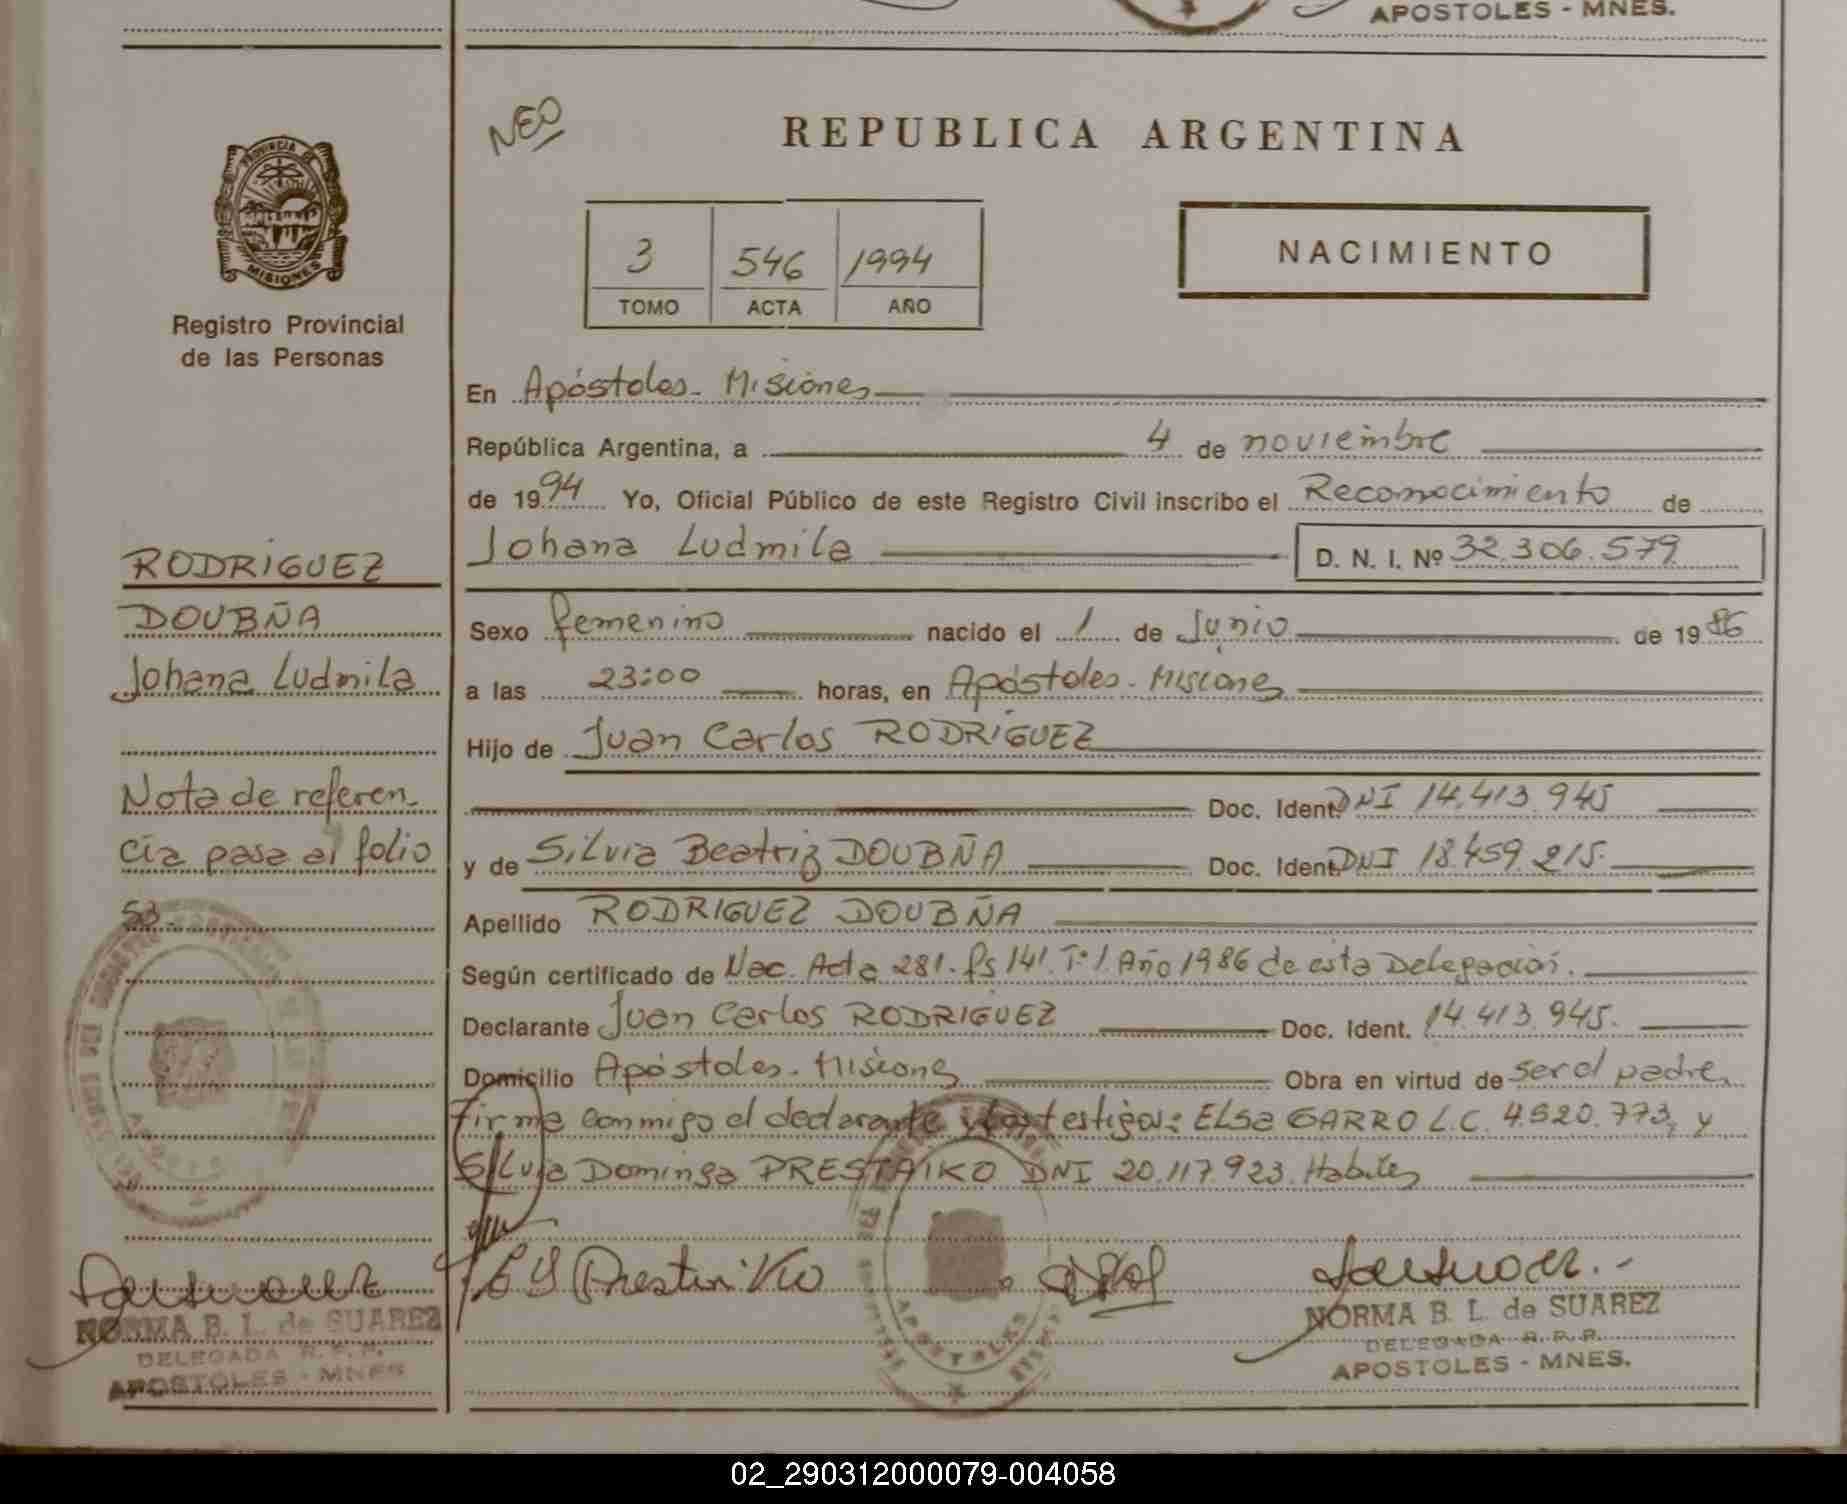 APOSTOLES - MNES.
NEO
REPUBLICA ARGENTINA
PROVINCIA DE
MISIONES
3 546 1994
TOMO ACTA AÑO
NACIMIENTO
Registro Provincial
de las Personas
En Apóstoles - Misiones
República Argentina, a 4 de noviembre
de 1994 Yo, Oficial Público de este Registro Civil inscribo el Reconocimiento de
Johana Ludmila D. N. I. Nº 32.306.579
RODRIGUEZ
DOUBÑA
Johana Ludmila
Nota de referen
cia pasa al folio
53
Sexo femenino nacido el 1 de Junio de 1986
a las 23:00 horas, en Apóstoles - Misiones
Hijo de Juan Carlos RODRIGUEZ
Doc. Ident. DNI 14.413.945
y de Silvia Beatriz DOUBÑA Doc. Ident. DNI 18.459.215.
Apellido RODRIGUEZ DOUBÑA
Según certificado de Nac. Acta 281. fs 141. Tº 1. Año 1986 de esta Delegación.
Declarante Juan Carlos RODRIGUEZ Doc. Ident. 14.413.945.
Domicilio Apóstoles - Misiones Obra en virtud de ser el padre
Firma conmigo el declarante y los testigos: ELSA GARRO L.C. 4.520.773, y
Silvia Dominga PRESTAIKO DNI 20.117.923. Habiles
NORMA B. L. de SUAREZ
DELEGADA R. P. P.
APOSTOLES - MNES
APOSTOLES
NORMA B. L. de SUAREZ
DELEGADA R. P. P.
APOSTOLES - MNES.
02_290312000079-004058